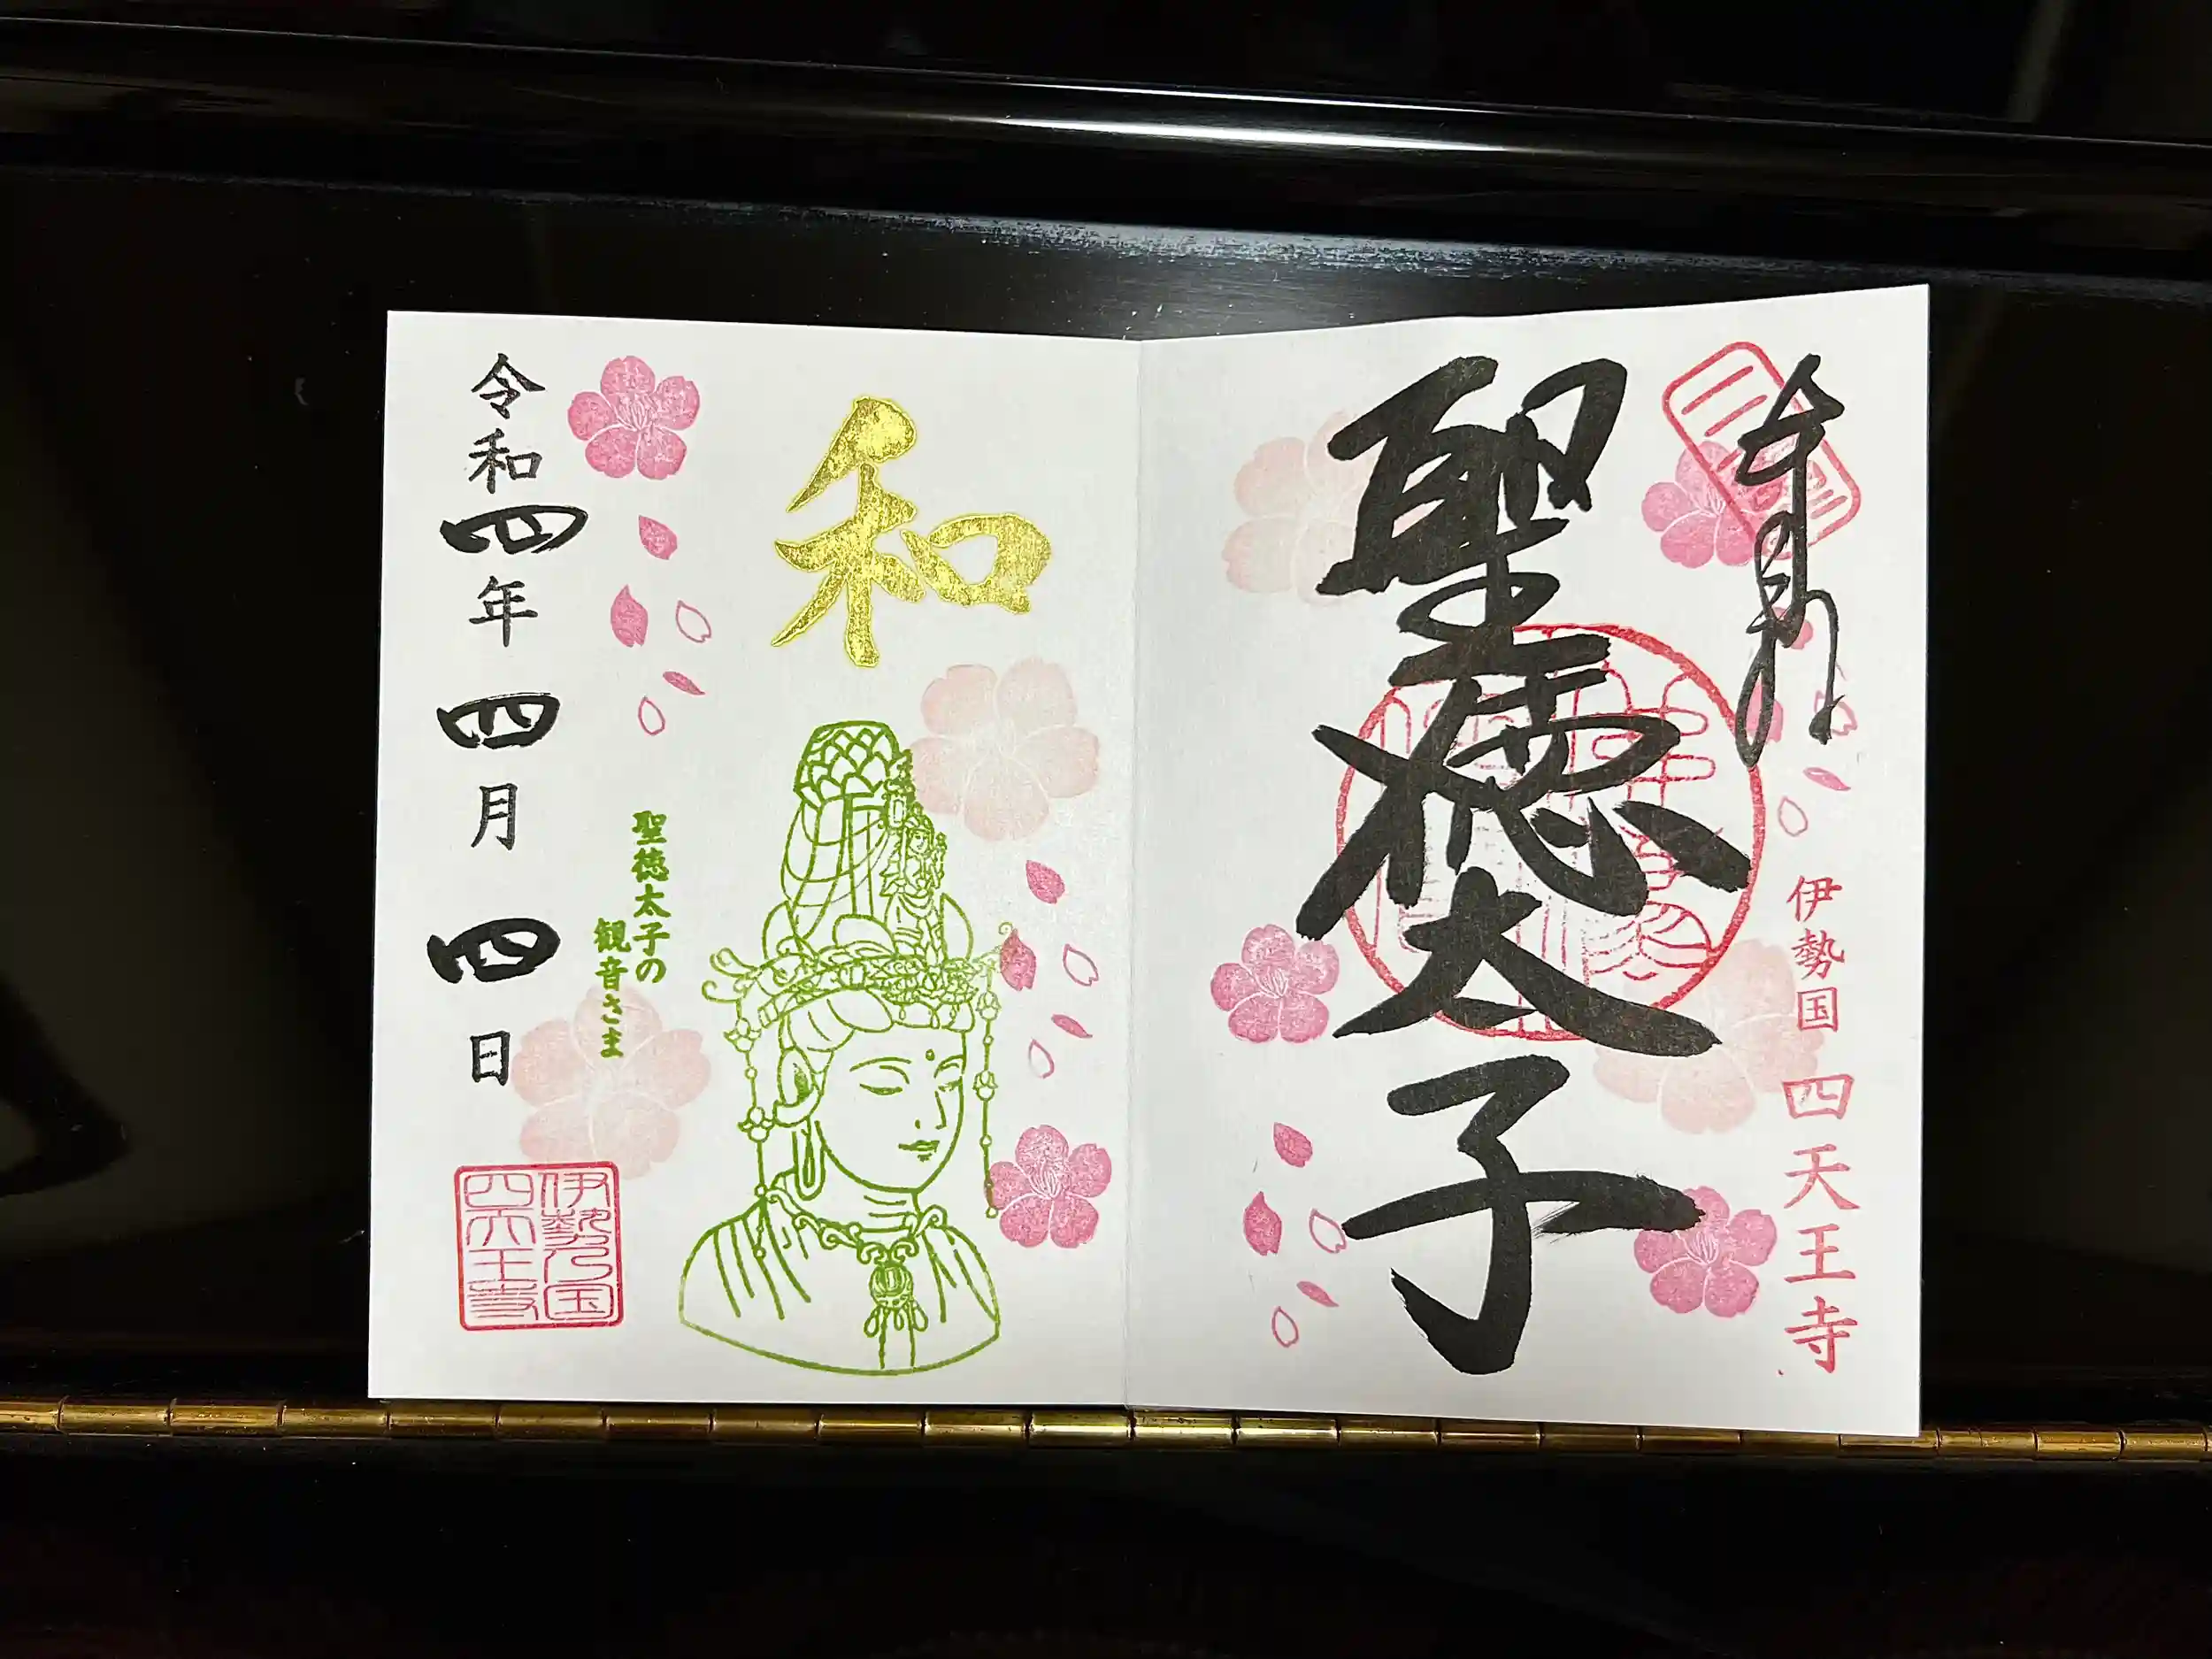 奉拝
聖徳太子
伊勢国 四天王寺
和
聖徳太子の
観音さま
令和四年四月四日
伊勢国
四天王寺